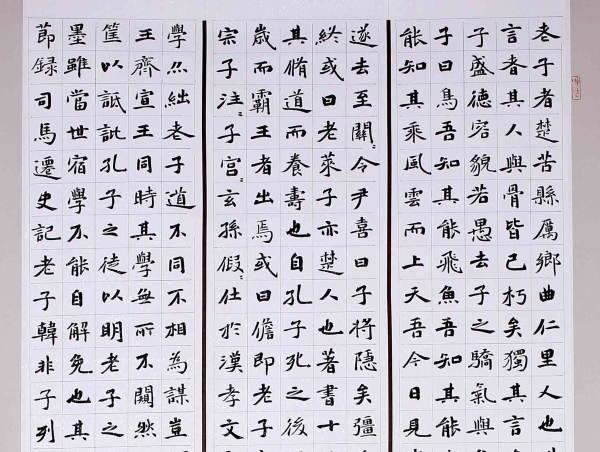 老子者楚苦縣厲鄉曲仁里人也
言者其人與骨皆已朽矣獨其言
子盛德容貌若愚去子之驕氣與
子曰鳥吾知其能飛魚吾知其能
能知其乘風雲而上天吾今日見
遂去至關〻令尹喜曰子將隱矣彊
終或曰老萊子亦楚人也著書十
其脩道而養壽也自孔子死之後
歲而霸王者出焉或曰儋即老子
宗子注〻子宮〻玄孫假〻仕於漢孝文
學亦絀老子道不同不相為謀豈
王齊宣王同時其學無所不闚然
筐以詆訿孔子之徒以明老子之
墨雖當世宿學不能自解免也其
節録司馬遷史記老子韓非子列